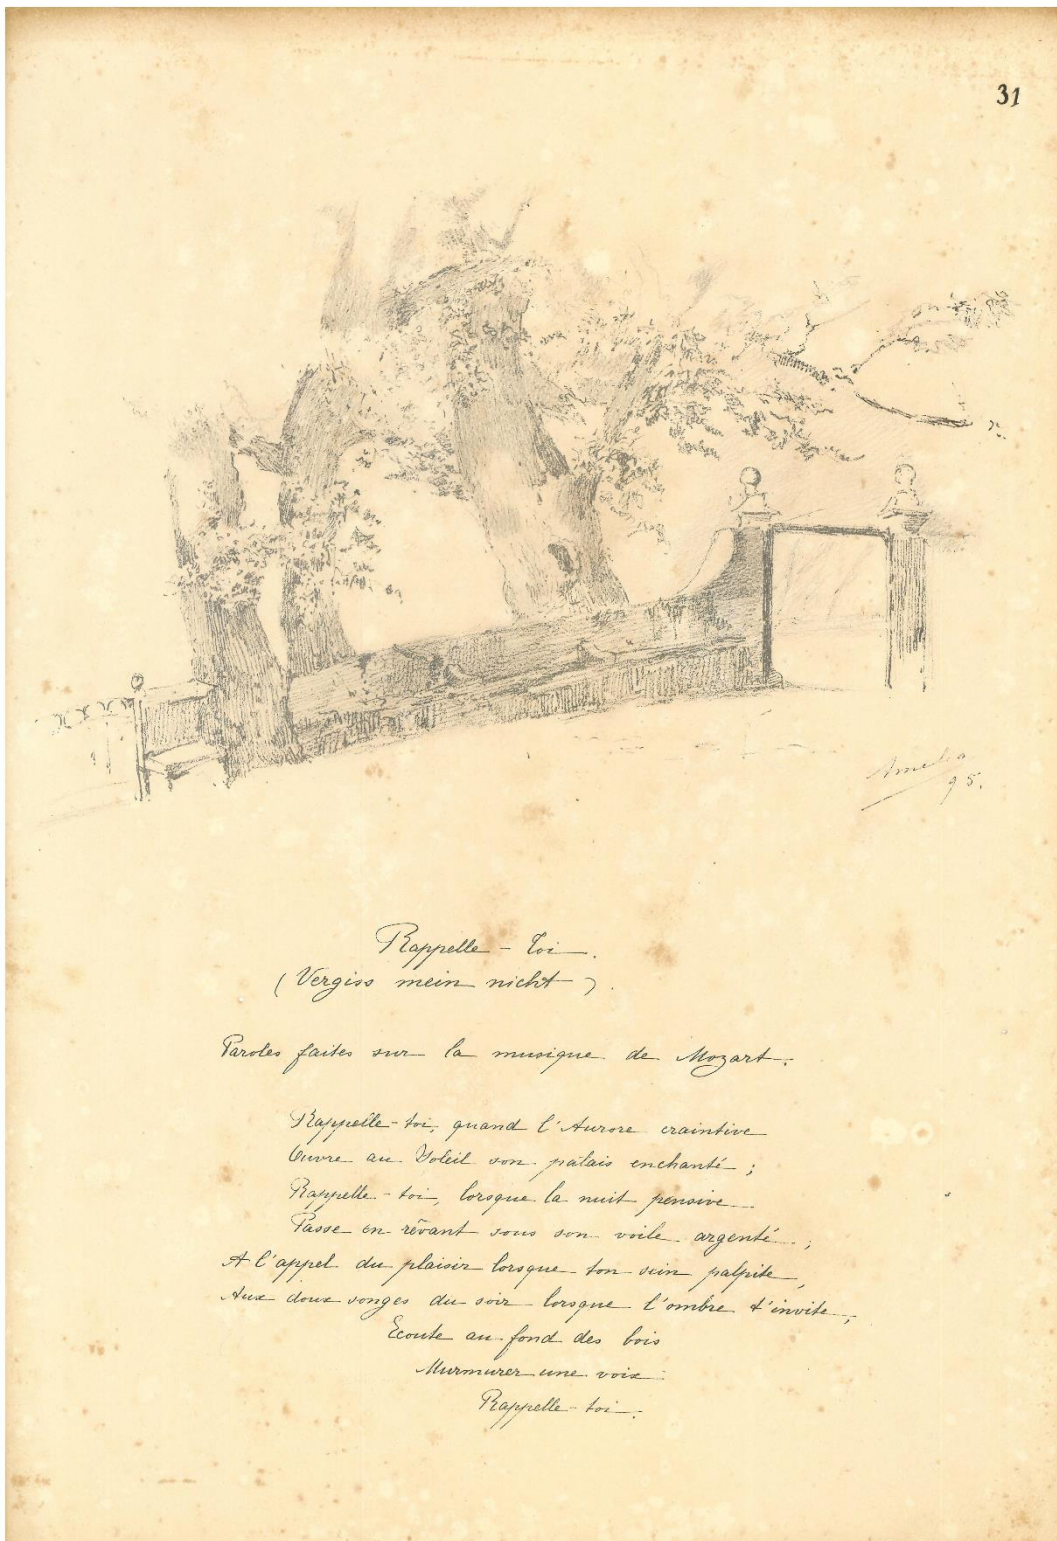 31
Amelia
95.
Rappelle-toi.
(Vergiss mein nicht).
Paroles faites sur la musique de Mozart.
Rappelle-toi, quand l'Aurore craintive
Ouvre au Soleil son palais enchanté;
Rappelle-toi, lorsque la nuit pensive
Passe en rêvant sous son voile argenté;
A l'appel du plaisir lorsque ton sein palpite,
Aux doux songes du soir lorsque l'ombre t'invite,
Ecoute au fond des bois
Murmurer une voix
Rappelle-toi.